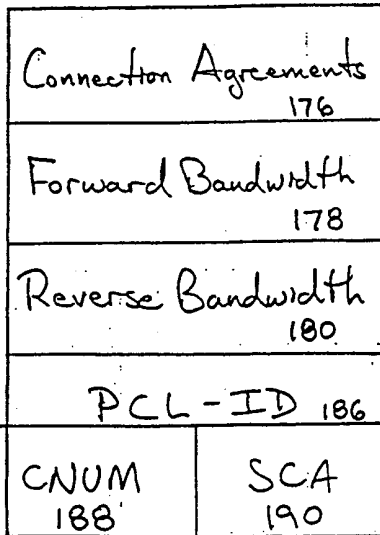 Connection Agreements
176
Forward Bandwidth
178
Reverse Bandwidth
180
PCL-ID 186
CNUM SCA
188 190